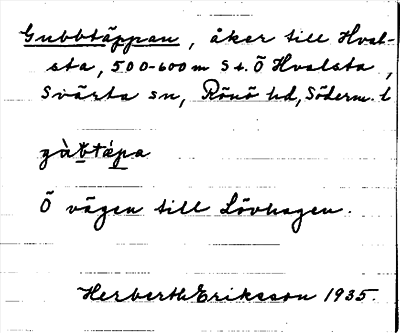 Gubbtäppan, åker till Hval-
sta, 500-600 m S t. Ö Hvalsta,
Svärta sn, Rönö hd, Söderm. l
gàb̥tä́pa
Ö vägen till Lövhagen.
Herberth Eriksson 1935.